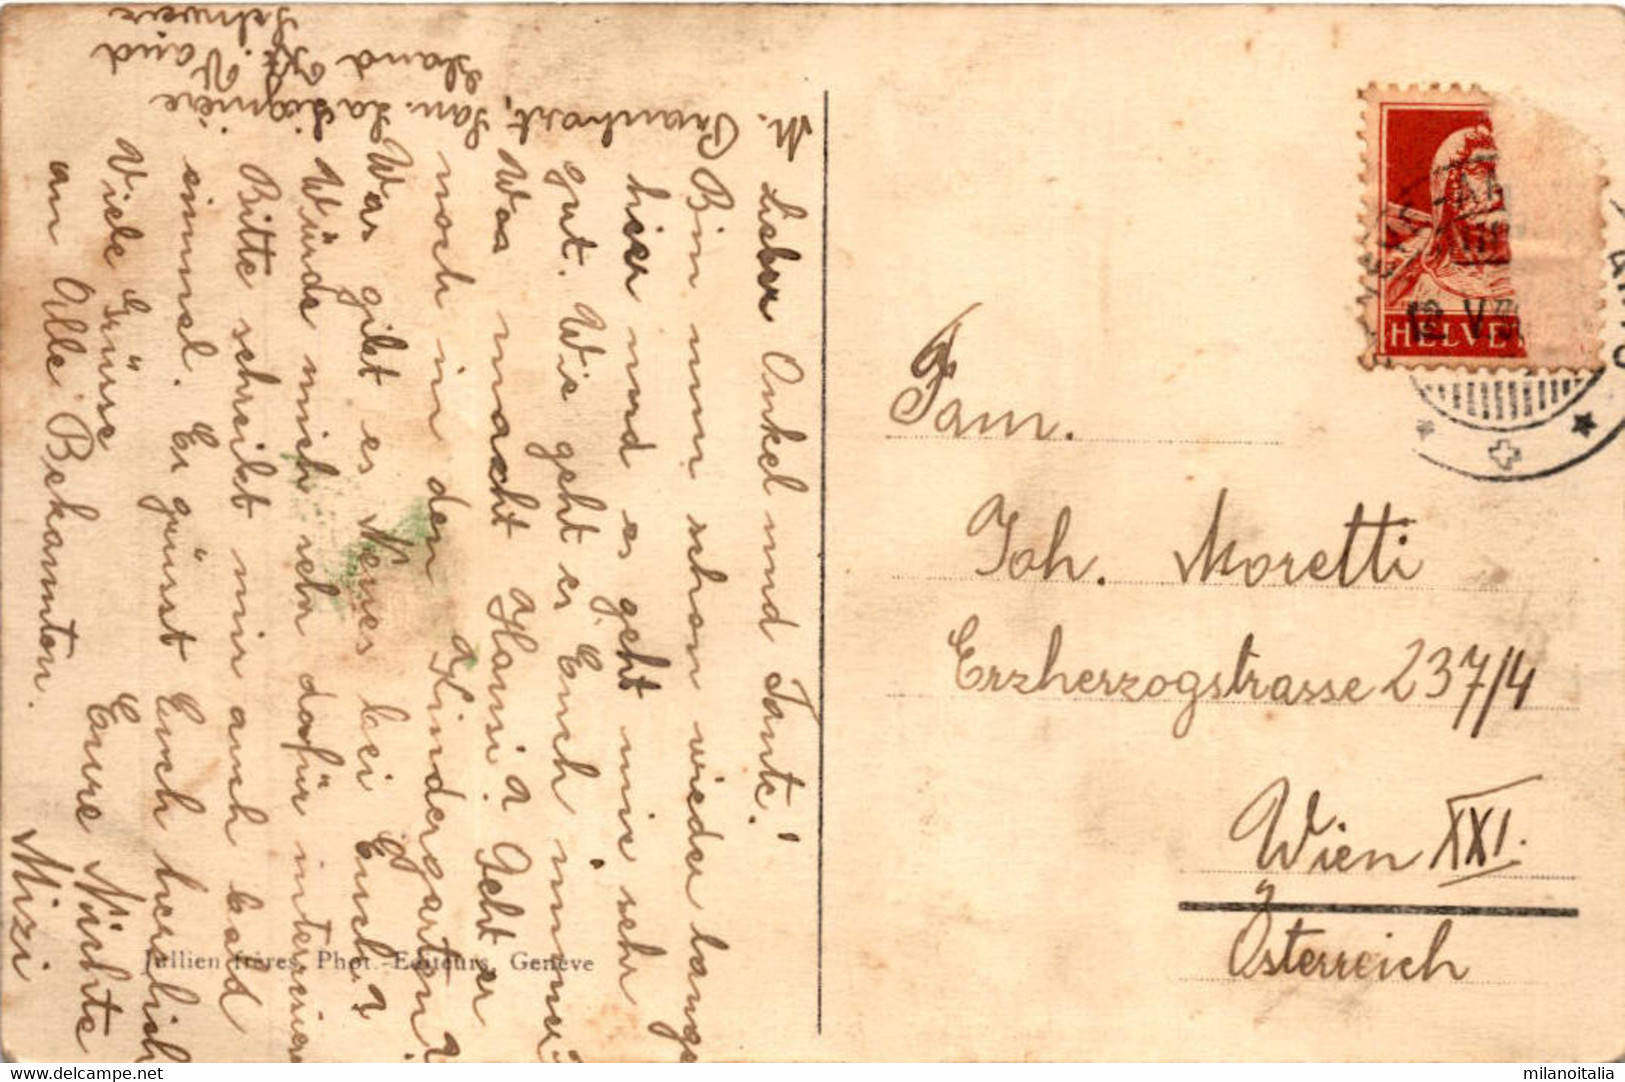 Lieber Onkel und Tante!
Bin nun schon wieder lange
hier und es geht mir sehr
gut. Wie geht es Euch immer?
Was macht Hansi? Geht er
noch in den Kindergarten?
Was gibt es Neues bei Euch?
Würde mich sehr dafür interessieren
Bitte schreibt mir auch bald
einmal. Es grüsst Euch herzlich
Viele Grüsse Eure Nichte
an Alle Bekannten. Mizi
M.
San. La
Vaud
Schweiz
Fam.
Joh. Moretti
Erzherzogstrasse 237/4
Wien XXI.
Österreich
HELVE
12 V
Jullien frères, Phot.-Editeurs, Genève
milanoitalia
www.delcampe.net